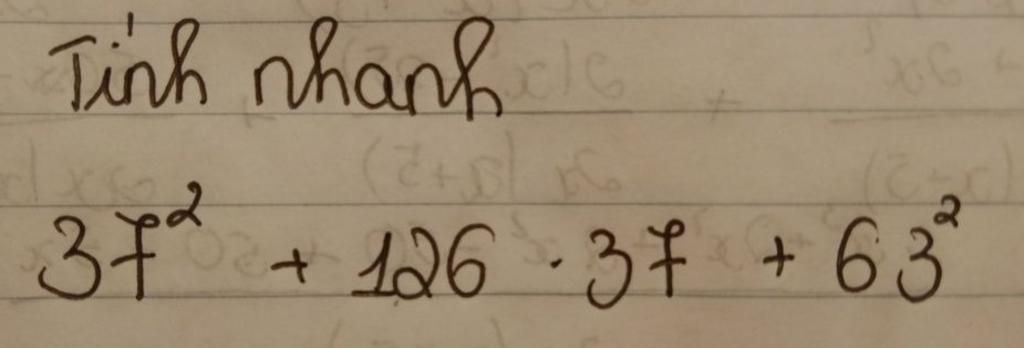 Tính nhanh
37² + 126 . 37 + 63²